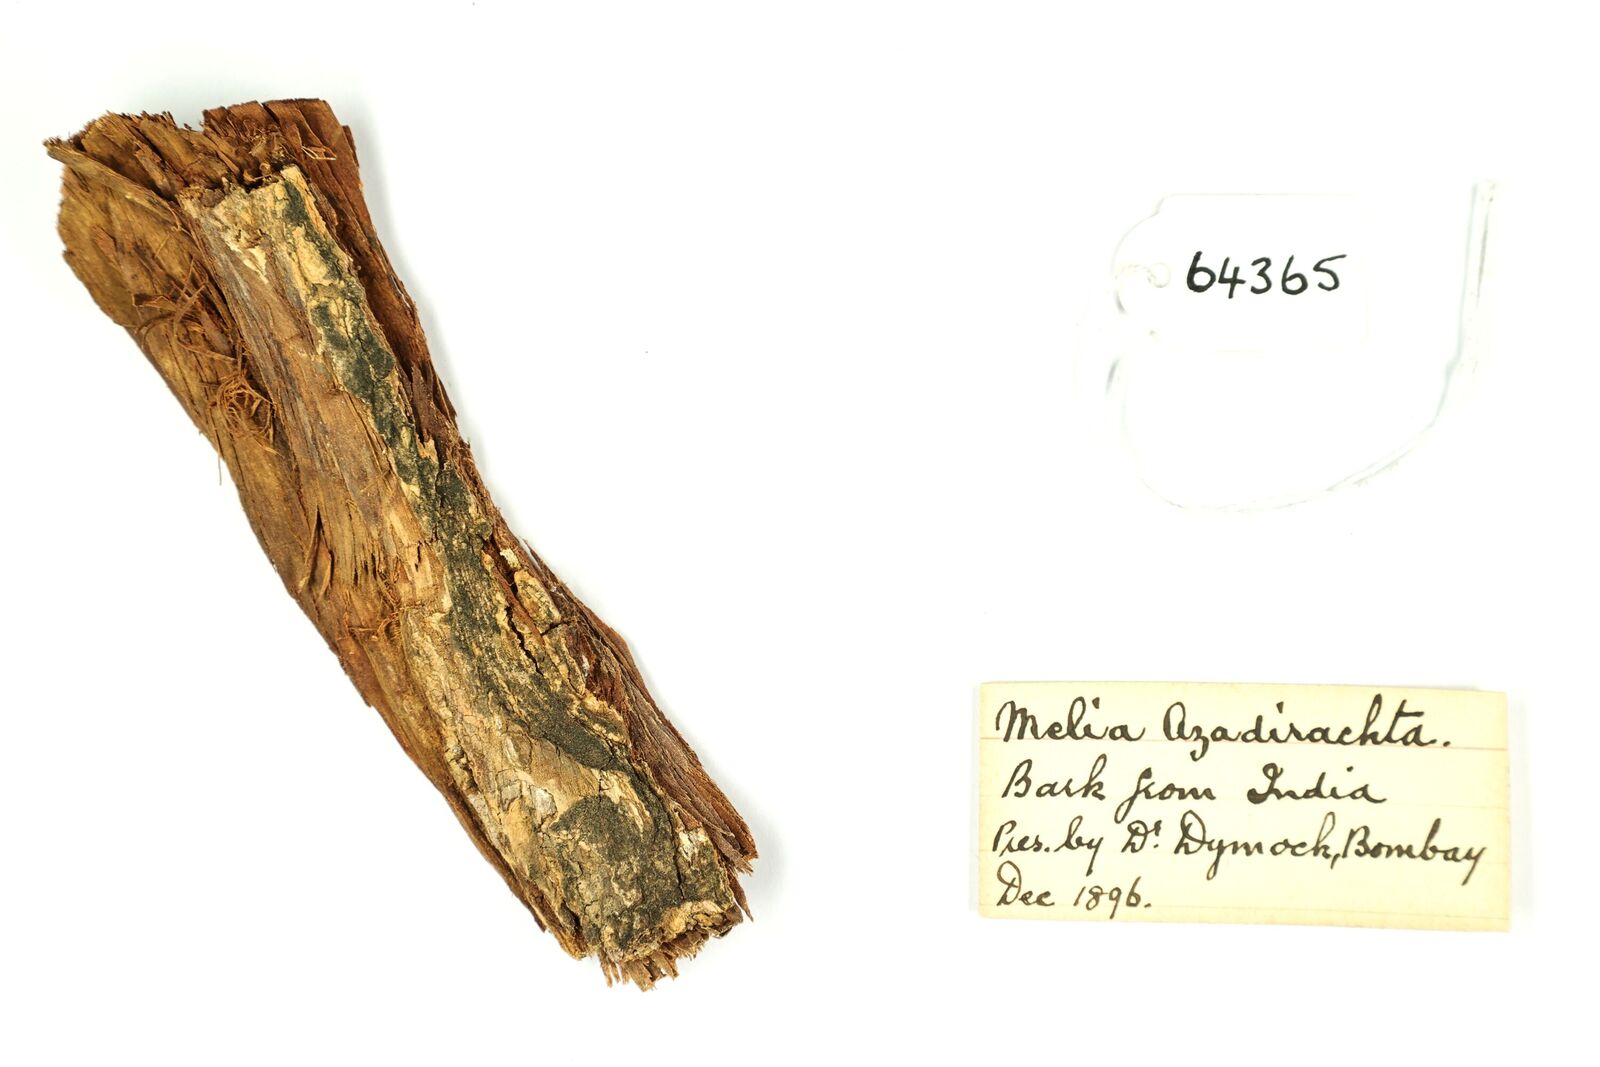 64365
Melia Azadirachta.
Bark from India
Pres. by Dr. Dymock, Bombay
Dec 1896.